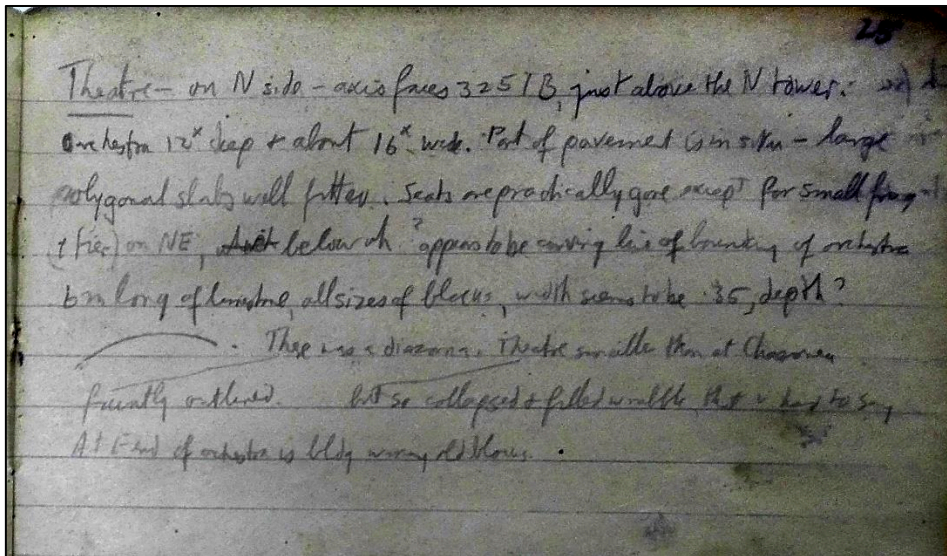 25
Theatre - on N side - axis faces 325 TB, just above the N tower.
Orchestra 12x deep + about 16x wide. Part of pavement is in situ - large
polygonal slabs well fitted. Seats are practically gone except for small frag
(1 tier) on NE, below wh ? appears to be curving line of bounding of orchestra
6m long of limestone, all sizes of blocks, width seems to be .35, depth?
There was a diazoma. Theatre smaller than at Chaeronea
faintly outlined. but so collapsed + filled w rubble that v hard to say
At E end of orchestra is bldg using old blocks.